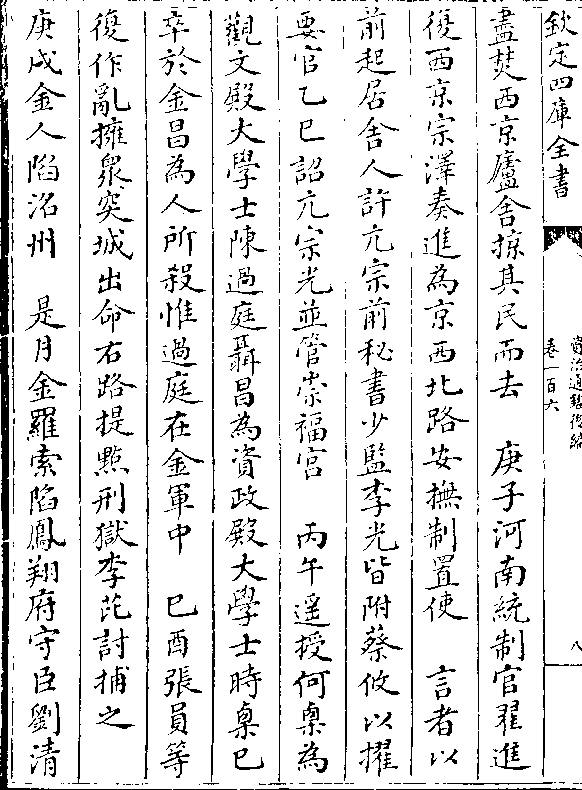 欽定四庫全書
資治通鑑後編
卷一百六
八
盡焚西京廬舍掠其民而去　庚子河南統制官翟進
復西京宗澤奏進為京西北路安撫制置使　言者以
前起居舍人許亢宗前秘書少監李光皆附蔡攸以擢
要官乙巳詔亢宗光並管崇福宮　丙午遥授何㮚為
觀文殿大學士陳過庭聶昌為資政殿大學士時㮚已
卒於金昌為人所殺惟過庭在金軍中　巳酉張員等
復作亂擁衆突城出命右路提㸃刑獄李茈討捕之
庚戌金人陷洺州　是月金羅索陷鳳翔府守臣劉清